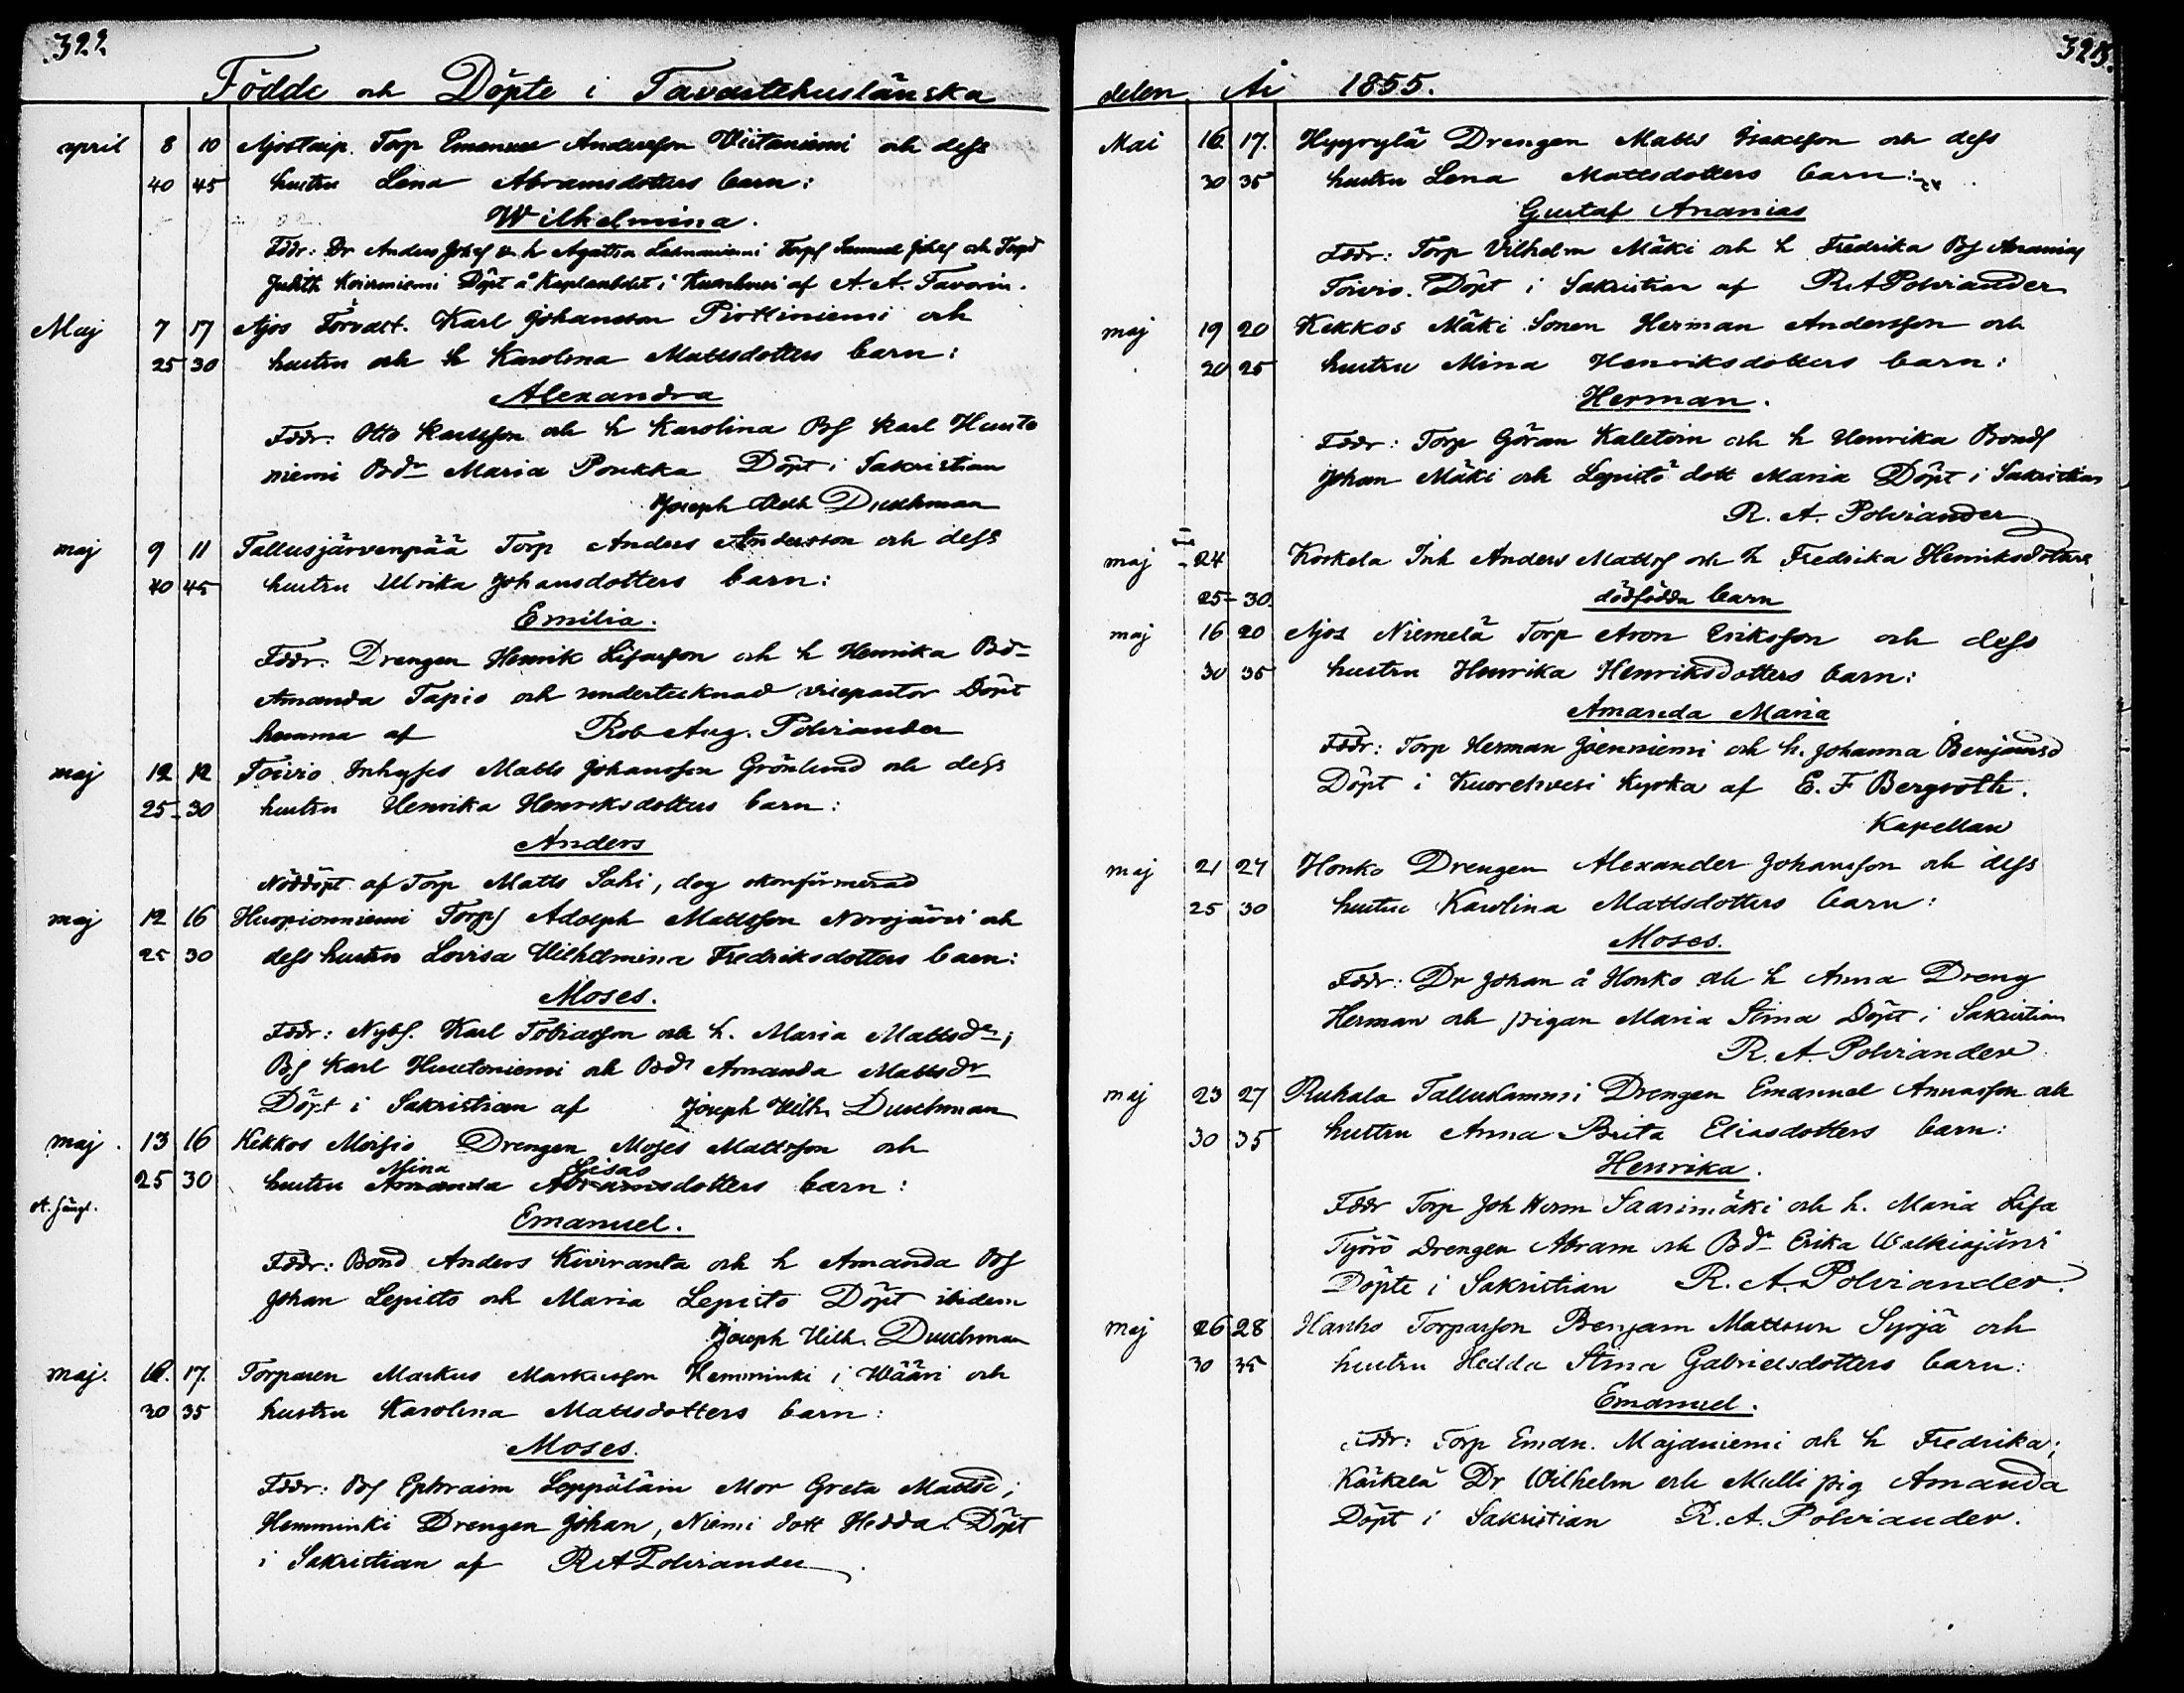 322
Födde och Döpte i Tavastehuslänska
april 8 10 Ajostaip. Torp Emanuel Andersson Viitaniemi och dess
40 45 hustru Lena Abramsdotters barn:
Wilhelmina.
Fddr: Dr Anders Johsf o. h Agatha Torpf Samuel Johsf och Torpd
Judith Döpt å i af A. A. Favorin.
Maj 7 17 Ajos Förvalt. Karl Johansson Pirttiniemi och
25 30 hustru och h Karolina Mattsdotters barn:
Alexandra
Fddr: Otto Karlsson och h Karolina Bf Karl Huuto
niemi Bdr Maria Poukka Döpt i Sakristian
Joseph Vilh Duchman
maj 9 11 Tallusjärvenpää Torp Anders Andersson och dess
40 45 hustru Ulrika Johansdotters barn:
Emilia.
Fddr. Drengen Henrik och h Henrika Bdr
Amanda Tapio och undertecknad vicepastor Döpt
hemma af Rob Aug. Polviander
maj 12 12 Toivio Inhyses Matts Johansson Grönlund och dess
25 30 hustru Henrika Henriksdotters barn:
Anders
Nöddöpt af Torp Matts Sahi, dog okonfirmerad
maj 12 16 Huopionniemi Torpf Adolph Mattsson och
25 30 dess hustru Lovisa Vilhelmina Fredriksdotters barn:
Moses.
Fddr: Nybf. Karl Tobiasson och h. Maria Mattsdr;
Bf Karl Huutoniemi och Bdr Amanda Mattsdr
Döpt i Sakristian af Joseph Vilh. Duchman
maj 13 16 Kekkos Moisio Drengen Moses Mattsson och
Mina Lisas
25 30 hustru Amanda Abramsdotters barn:
Emanuel.
Fddr: Bond Anders Kiviranta och h Amanda Bf
Johan Lepistö och Maria Lepistö Döpt ibidem
Joseph Vilh. Duchman
maj. 12. 17. Torparen Markus Markusson Hemminki i Wääri och
30 35 hustru Karolina Mattsdotters barn:
Moses.
Fddr: Bf Ephraim Leppäläin Mor Greta Mattsd;
Hemminki Drengen Johan, Niemi dott Hedda. Döpt
i Sakristian af R A Polviander
323.
delen År 1855.
Mai 16 17. Hyyrylä Drengen Matts Isaksson och dess
30 35 hustru Lena Mattsdotters barn:
Gustaf Ananias
Fddr: Torp Vilhelm Mäki och h Fredrika Bf Ananias
Toivio. Döpt i Sakristian af R A Polviander
maj 19 20 Kekkos Mäki Sonen Herman Andersson och
20 25 hustru Mina Henriksdotters barn:
Herman.
Fddr: Torp Göran Kaletoin och h Henrika Bondf
Johan Mäki och Lepistö dott Maria Döpt i Sakristian
R. A. Polviander
maj 24 Korkela Inh Anders Mattsf och h Fredrika Henriksdotters
25 30. dödfödda barn
maj 16 20 Ajos Niemelä Torp Aron Eriksson och dess
30 35 hustru Henrika Henriksdotters barn:
Amanda Maria
Fddr: Torp Herman Joenniemi och h. Johanna Benjamsd
Döpt i Kuorehvesi Kyrka af E. F Bergroth.
Kapellan
maj 21 27 Honko Drengen Alexander Johansson och dess
25 30 hustru Karolina Mattsdotters barn:
Moses.
Fddr: Dr Johan å Honko och h Anna Dreng
Herman och pigan Maria Stina Döpt i Sakristian
R. A. Polviander
maj 23 27 Ruhala Tallulammi Drengen Emanuel Annasson och
30 35 hustru Anna Brita Eliasdotters barn:
Henrika.
Fddr Torp Joh Herm Saarimäki och h. Maria Lisa
Työrö Drengen Abram och Bdr Erika Walkiajärvi
Döpte i Sakristian R. A. Polviander.
maj 26 28 Hanho Torparson Benjam Mattsson Syrjä och
30 35 hustru Hedda Stina Gabrielsdotters barn:
Emanuel.
Fddr: Torp Eman. Majaniemi och h Fredrika;
Käikelä Dr Wilhelm och Mulli pig Amanda
Döpt i Sakristian R. A. Polviander.